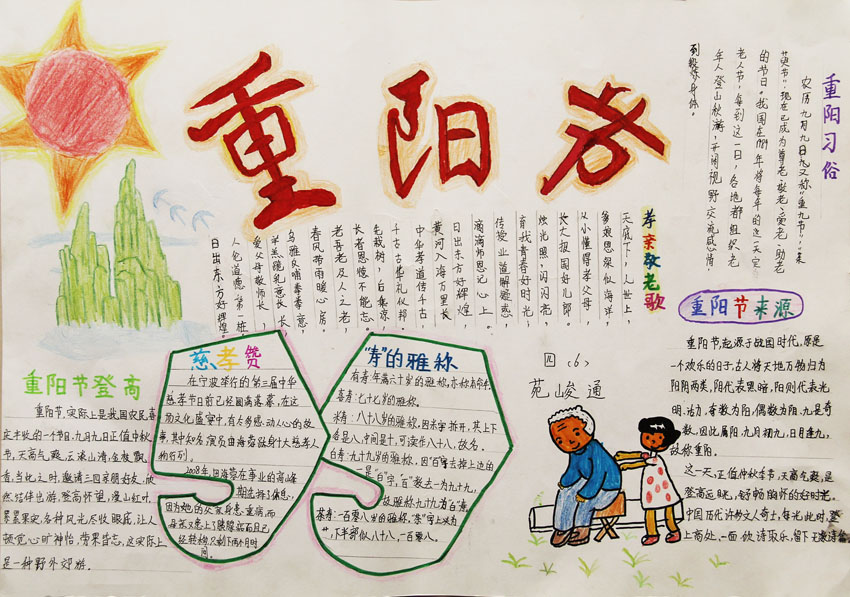 重阳孝
重阳习俗
农历九月九日九又称"重九节","茱
萸节"现在已成为尊老敬老爱老助老
的节日。我国在1989年将每年的这一天定
老人节,每到这一日,各地都组织老
年人登山秋游,开阔视野交流感情
到锻炼身体。
孝亲敬老歌
天底下,人世上,
爹娘恩深似海洋,
从小懂得孝父母
长大报国好儿郎。
烛光照一闪闪亮,
育我青春好时光,
传授业道解疑惑,
滴滴师恩记心上。
日出东方好辉煌,
黄河入海万里长
中华孝道传千古,
千古古集礼仪邦。
毛栽树,后乘凉
长者恩惠不能忘。
老吾老及人之老,
春风带雨暖心房。
乌鸦反哺牵孝意,
羊羔跪乳意长长,
爱父母敬师长,
人伦道德第一桩
日出东方好辉煌。
重阳节来源
重阳节,起源于战国时代,原是
一个欢乐的日子,古人将天地万物归为
阴阳两类,阴代表黑暗,阳则代表光
明、活力,奇数为阳,偶数为阴,九是奇
数,因此属阳,九月初九,日月逢九,
故称重阳。
这一天,正值仲秋季节,天高气爽,是
登高远眺,舒畅胸怀的好时光。
中国历代许多文人奇士,每光此时,登
上高处,一面饮诗取乐,留下
四(6)
苑峻通
慈孝赞
在宁波举行的第三届中华
慈孝节日前已经圆满落幕,在这
动文化盛宴中,有太多感动人心的故
事,其中知名演员由海蓉跻身十大慈孝人
物行列。
2008年,田海蓉在事业的高峰
期选择了偏息,
因为她的父亲身患重病,而
母亲又患上了胰腺癌而且已
经转移,只剩下两个月时
间。
"寿"的雅称
有寿:年满六十岁的雅称,亦称为余年
喜寿:七十七岁的雅称。
米寿:八十八岁的雅称,因米字拆开,其上下
各是八,中间是十,可读作八十八,故名。
白寿:九十九岁的雅称,因"百"字去掉上边的
一是"白"字,"百"数去一为九十九,
故雅称九十九为"白"寿
茶寿:一百零八岁的雅称,"茶"字上以为
"艹",下半部似八十八,一百零八。
重阳节登高
重阳节,实际上是我国农民喜
庆丰收的一个节日,九月九日正值中秋
节,天高气爽,云淡山清,金枝飘
香,当此之时,邀请三四亲朋好友,欣
然结伴出游,登高怀望,漫山红叶,
累累果实,各种风光尽收眼底,让人
顿觉心旷神怡,劳累皆忘,这实际上
是一种野外郊游。